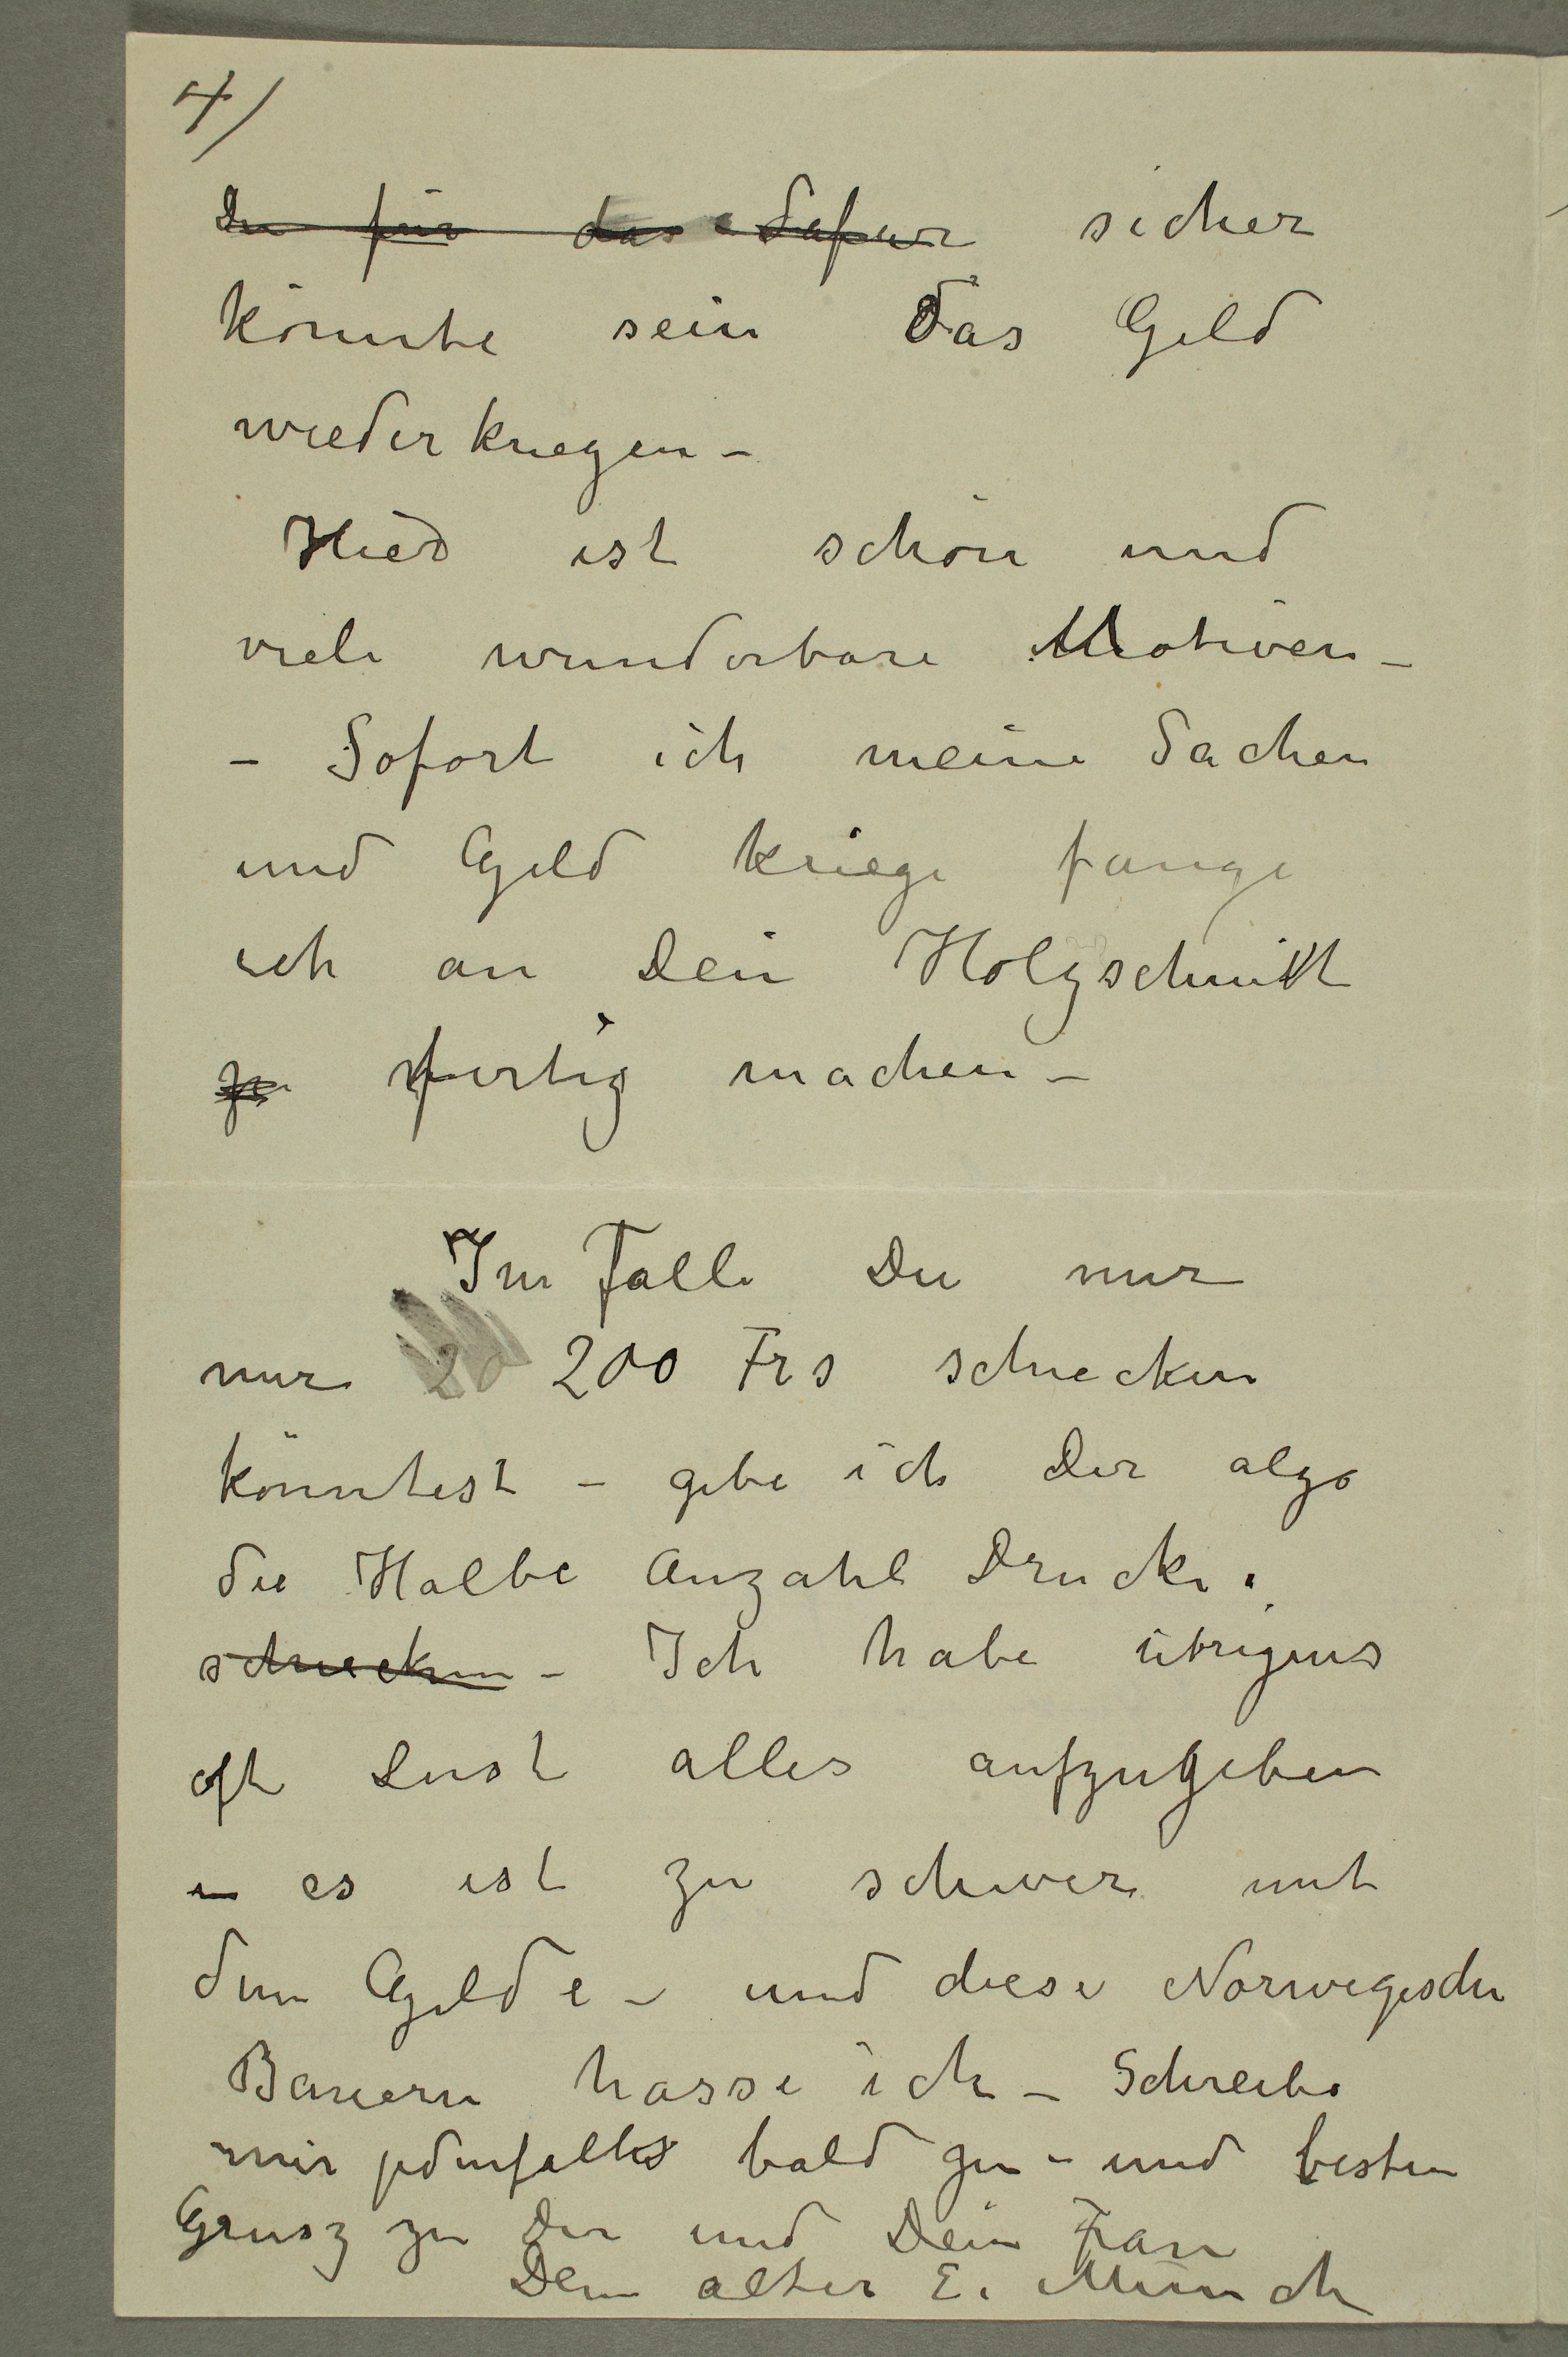 4)
Du für das Dafür sicher
könnte sein das Geld
wiederkriegen –
Hier ist schön und
viele wunderbare Motiven –
– Sofort ich meine Sachen
und Geld kriege fange
ich an Dein Holzschnitt
zu fertig machen –
Im Falle Du nur
nur 20 200 Frs schicken
könntest – gebe ich Dir alzo
die Halbe Anzahl Drucke.
schicken – Ich habe übrigens
oft Lust alles aufzugeben
– es ist zu schwer mit
dem Gelde – und diese Norwegische
Bauern hasse ich – Schreibe
mir jedenfalls bald zu – und besten
Grusz zu Dir und Dein Frau
Dein alter E. Munch